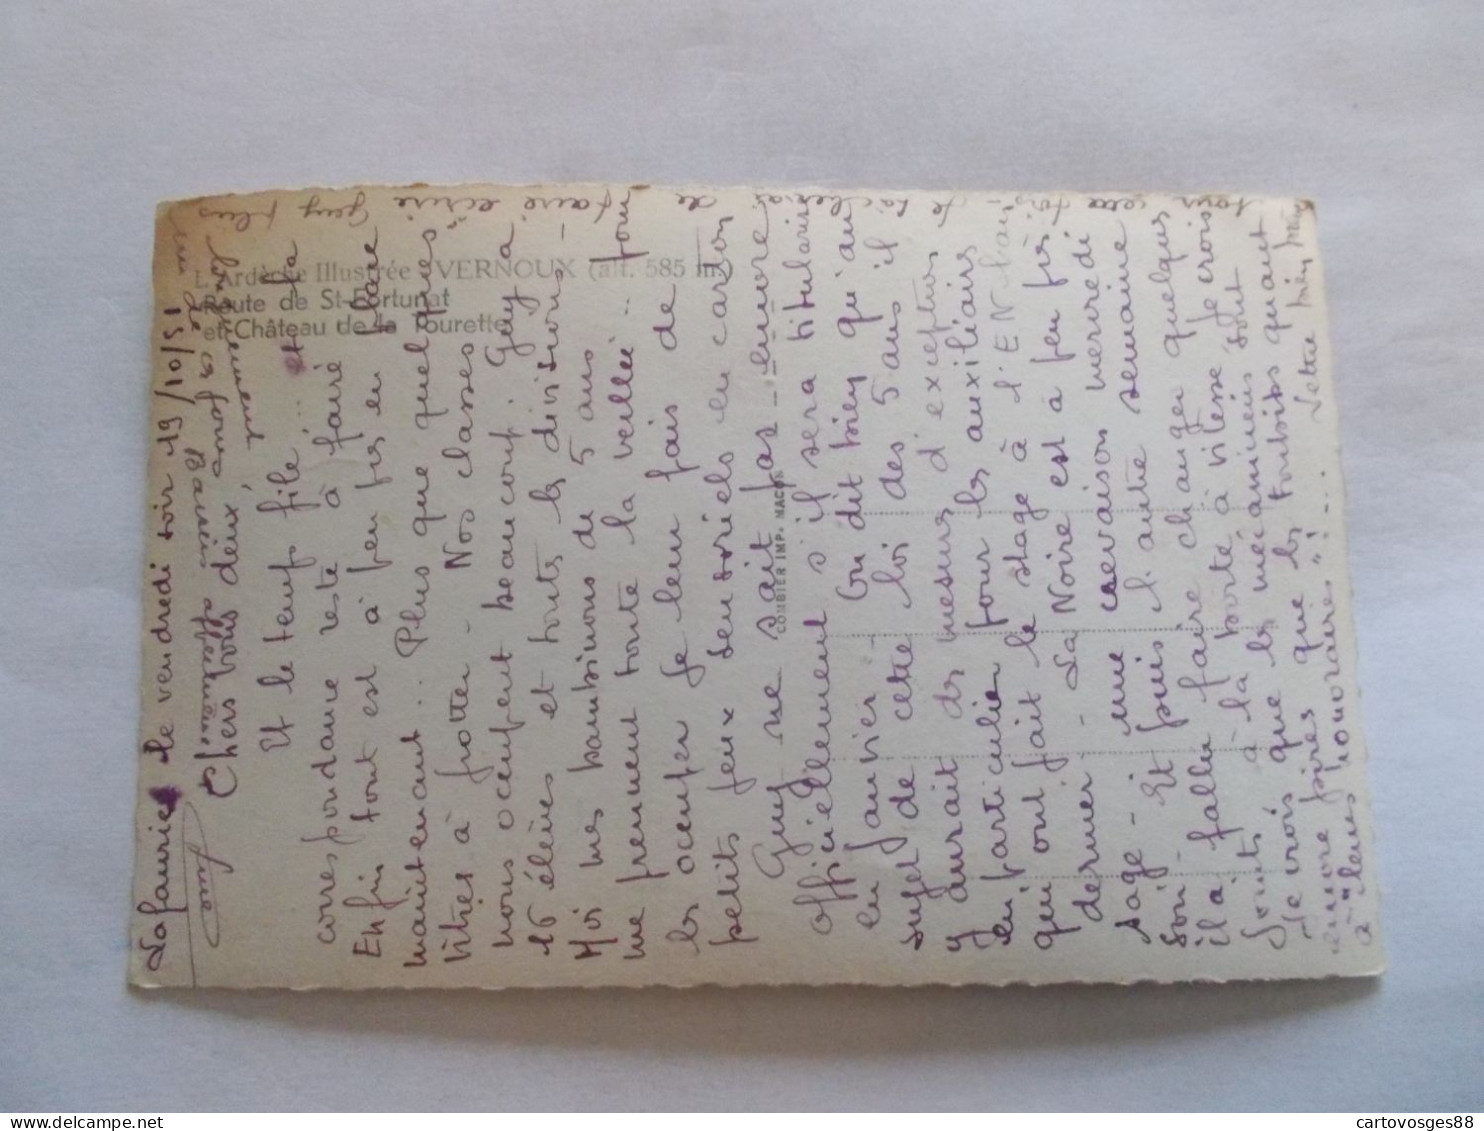 La Faurie le vendredi soir 19/10/51
Chers vous deux,
Et le temps file... et la
correspondance reste à faire
Enfin tout est à peu près en place
maintenant.. Plus que quelques
vitres à frotter - Nos classes
nous occupent beaucoup. Guy a
16 élèves et touts les divisions -
Moi mes bambinous de 5 ans
me prennent toute la veillée.. pour
les occuper je leur fais de
petits jeux sensoriels en carton
Guy ne sait pas encore
officiellement s'il sera titularisé
en janvier - On dit bien qu'au
sujet de cette loi des 5 ans il
y aurait des mesures d'exception
en particulier pour les auxiliaires
qui ont fait le stage à l'EN l'an
dernier - La Noire est à peu près
sage - une crevaison mercredi
soir - Et puis l'autre semaine
il a fallu faire changer quelques
joints à la boîte à vitesse. Je crois
Je crois que les mécaniciens sont
encore pires que les toubibs quant
à "leurs honoraires"!...
Lettre
je tâcherai de faire écrire Guy plus
longuement
de ces fonds
Baisers affectueux
L'Ardèche Illustrée - VERNOUX (alt. 585 m)
Route de St-Fortunat
et Château de la Tourette
COMBIER IMP. MACON
cartovosges88